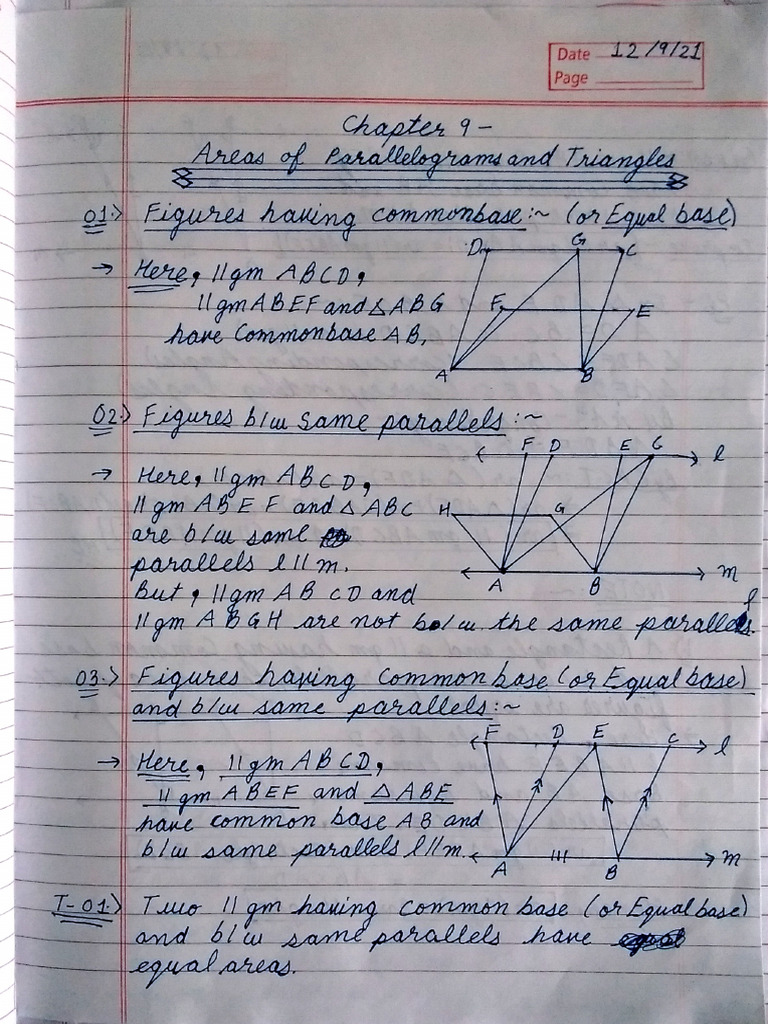 Date 12/9/21
Page
Chapter 9 -
Areas of Parallelograms and Triangles
01.> Figures having common base :~ (or Equal base)
D G C
→ Here, ||gm ABCD,
||gm ABEF and △ABG
F E
have Common base AB.
A B
02.> Figures b/w same parallels :~
F D E C l
→ Here, ||gm ABCD,
||gm ABEF and △ABC
H G
are b/w same
parallels l||m.
A B m
But, ||gm ABCD and
||gm ABGH are not b/w the same parallels.
03.> Figures having Common base (or Equal base)
and b/w same parallels :~
F D E C l
→ Here, ||gm ABCD,
||gm ABEF and △ABE
have common base AB and
b/w same parallels l||m.
A B m
T-01.> Two ||gm having common base (or Equal base)
and b/w same parallels have
equal areas.